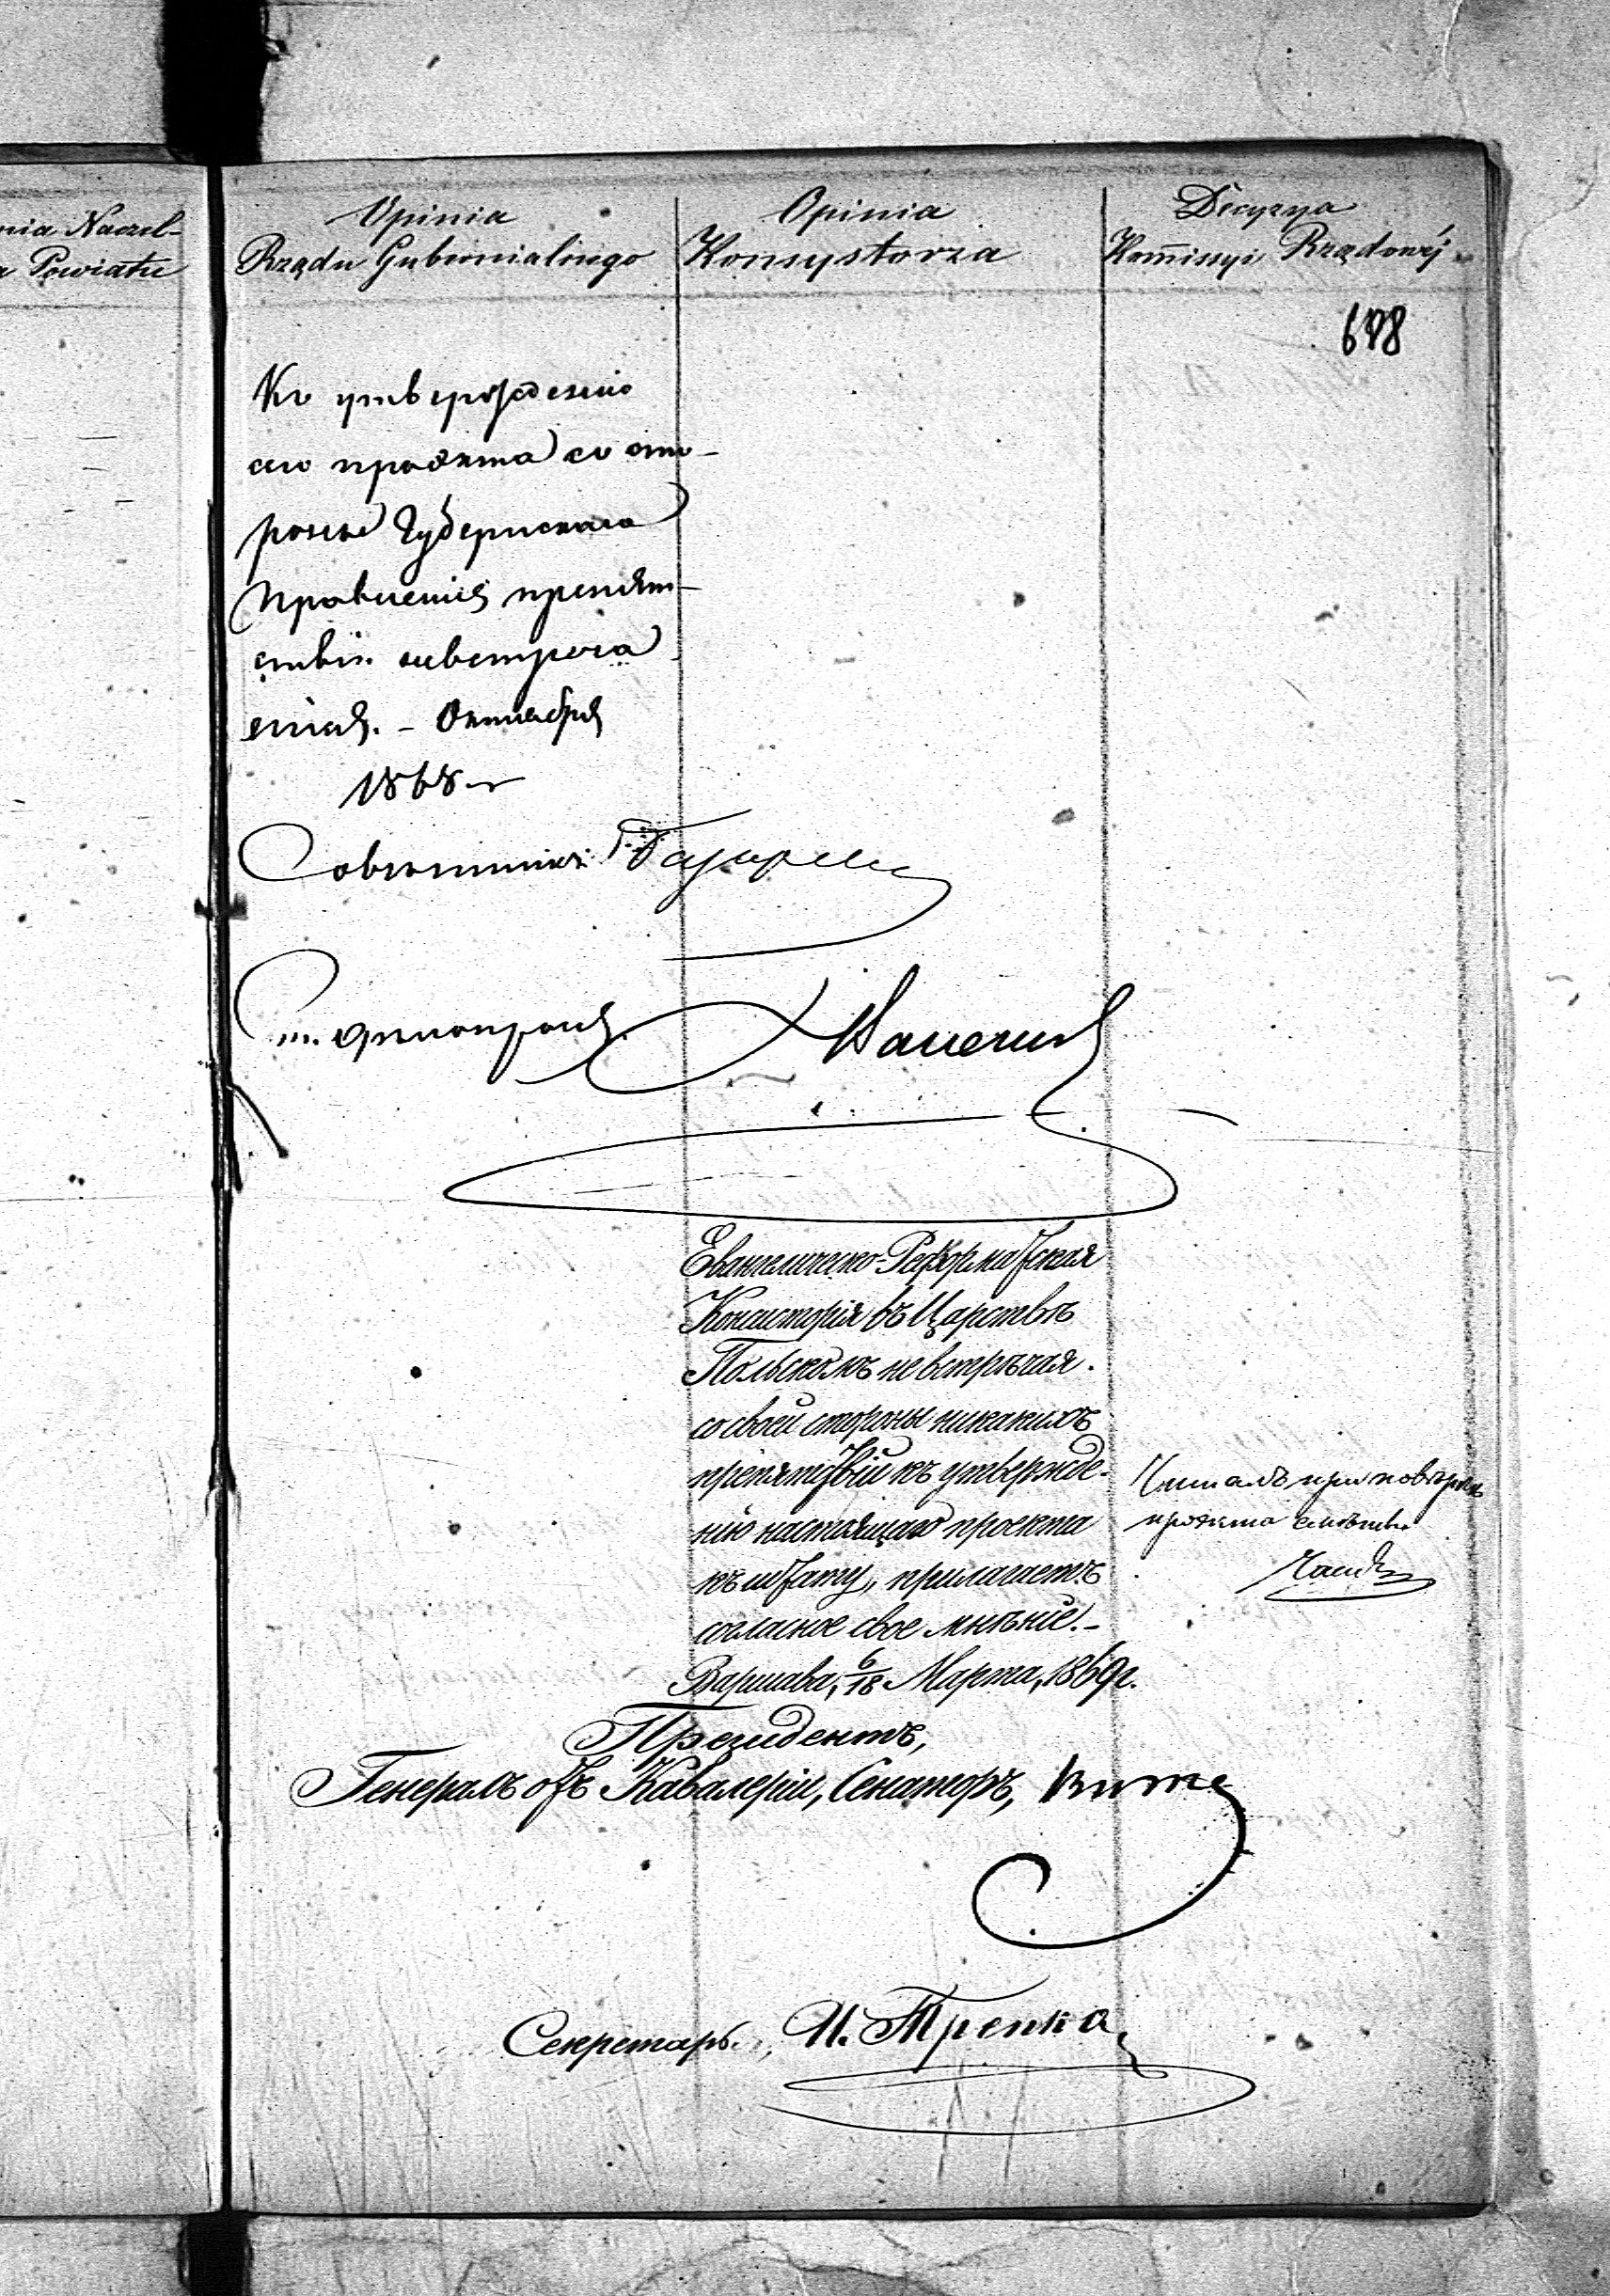 nia Naczel-
a Powiatu
Opinia
Rządu Gubernialnego
Opinia
Konsystorza
Decyzya
Kommissyi Rządowéj
688
Къ утвержденію
сего проэкта со сто-
роны Губернскаго
Правленія препят-
ствія невстреча
ется. – Октября
1868 г
Совѣтникъ
Евангелическо-Реформатская
Консисторія въ Царствѣ
Польскомъ не встрѣчая
со своей стороны никакихъ
препятствій къ утвержде-
нію настоящаго проекта
къ штату, прилагаетъ
согласное свое мнѣніе.–
Варшава, 6/18 Марта, 1869 г.
Читалъ при повѣркѣ
проэкта смѣты
Президентъ,
Генералъ отъ Кавалеріи, Сенаторъ, Витте
Секретарь, И. Трепка